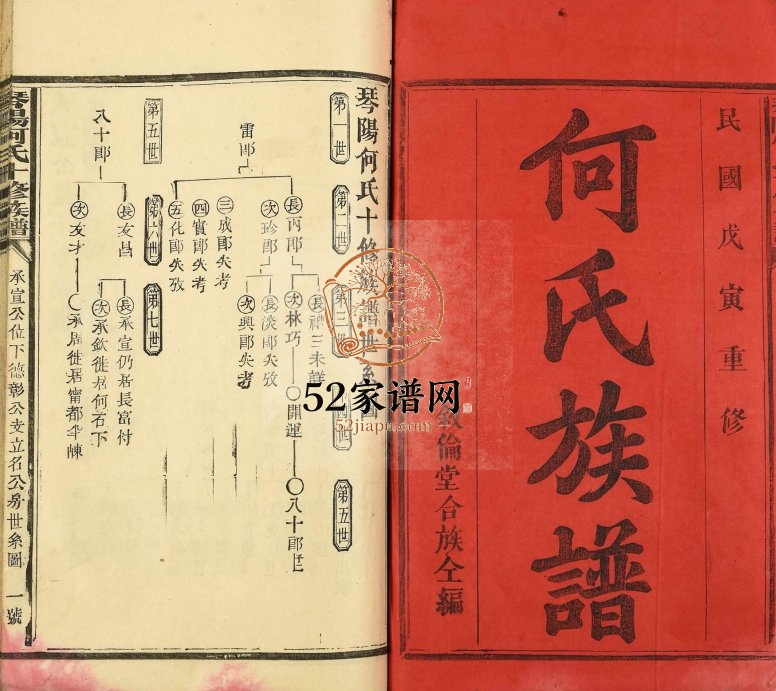 民國戊寅重修
何氏族譜
敘倫堂合族仝編
琴陽何氏十修族譜世系圖
第一世
第二世
第三世
第四世
第五世
雷郎
長丙郎
次珍郎
三成郎失考
四實郎失考
五化郎失攷
長禮三未詳
次林巧
開運
八十郎
長淡郎失攷
次興郎失考
第五世
第六世
第七世
八十郎
長友昌
次友才
長承宣仍居長富付
次承欽徙居何石下
承居徙居甯都
琴陽何氏十修族譜
承宣公位下德彰公支立名公房世系圖
一號
52家谱网
52jiapu.com